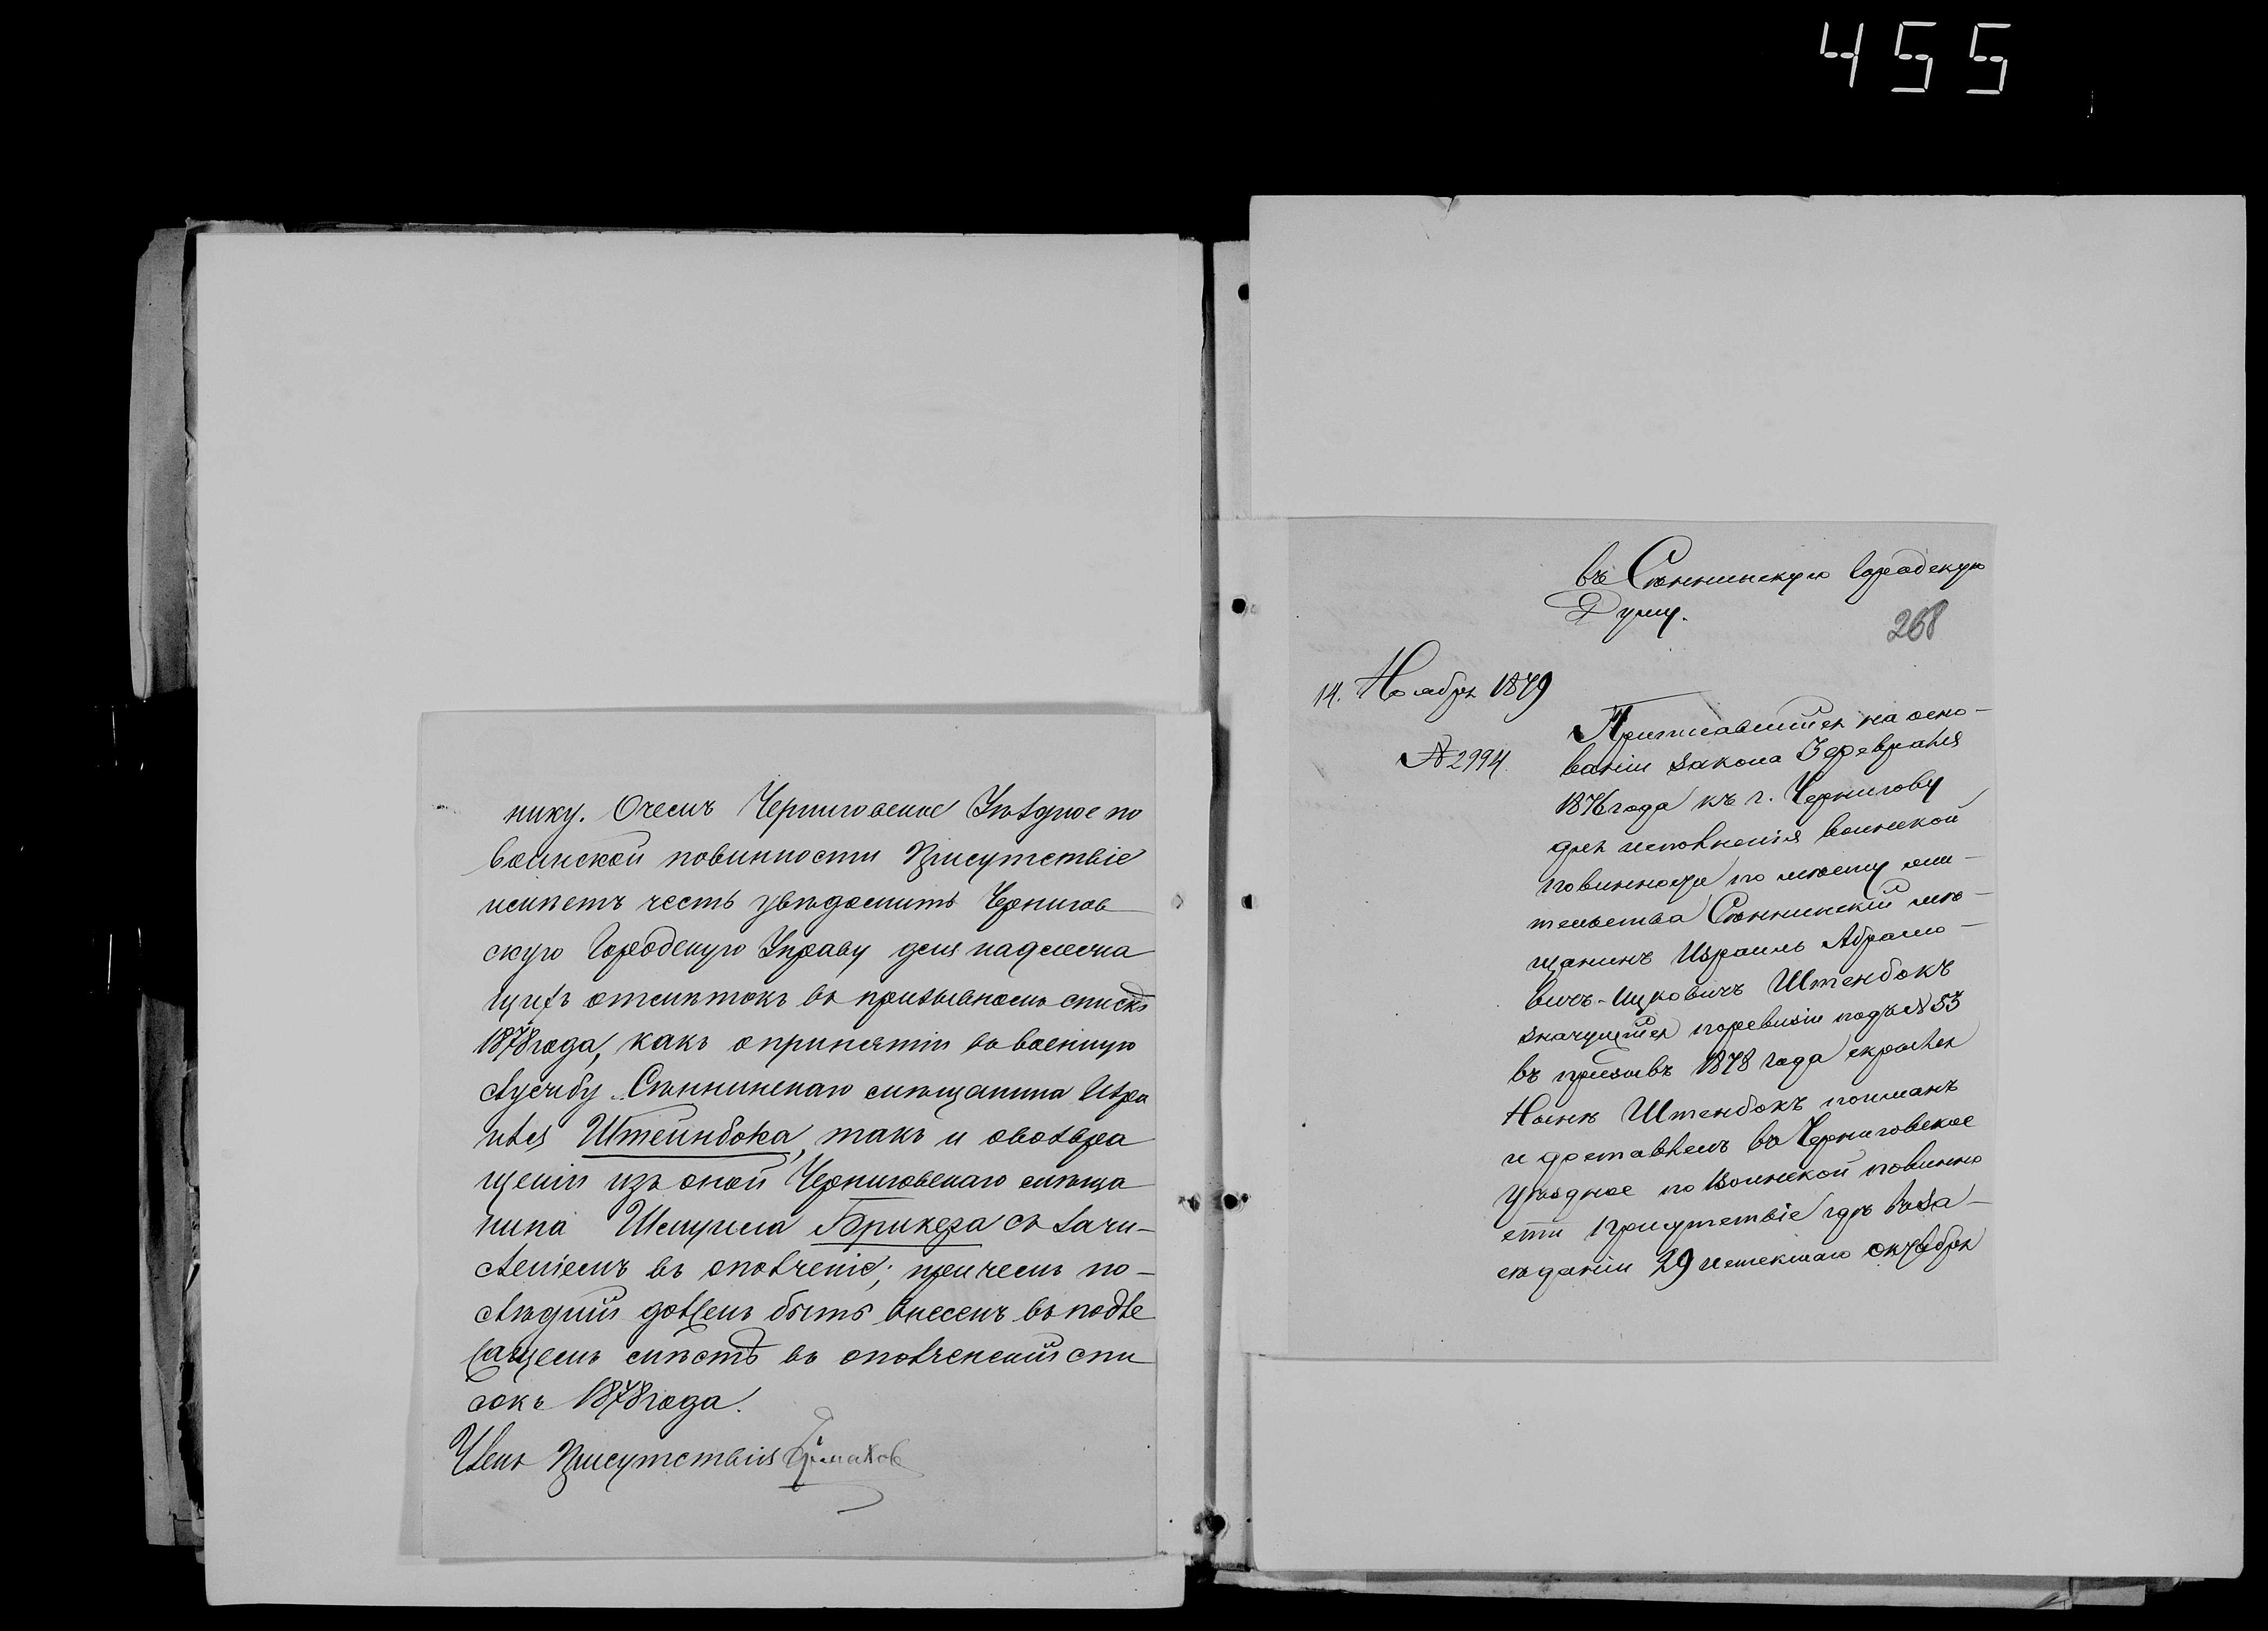 455
нику. О чемъ Черниговское Уѣздное по
воинской повинности Присутствіе
имѣетъ честь увѣдомить Чернигов
скую Городскую Управу для надлежа
щихъ отмѣтокъ въ призывномъ спискѣ
1878 года, какъ о принятіи въ военную
службу Сѣннинскаго мѣщанина Изра
иля Штейнбока, такъ и о возвра
щеніи изъ оной Черниговскаго мѣща
нина Шмуила Брикера съ зачи-
сленіемъ въ ополченіе; при чемъ по-
слѣдній долженъ быть внесенъ въ подле
жащемъ мѣстѣ въ ополченскій спи
сокъ 1878 года.
Членъ Присутствія
въ Сѣннинскую Городскую
Думу.
268
14. Ноября 1879
№ 2994.
Приписавшійся на осно-
ваніи закона 3 февраля
1876 года къ г. Чернигову
для исполненія воинской
повинности по мѣсту жи-
тельства Сѣннинскій мѣ-
щанинъ Израиль Абрамо-
вичъ-Ицковичъ Штенбокъ
значущійся по ревизіи подъ № 53
въ призывъ 1878 года скрылся
Нынѣ Штенбокъ пойманъ
и доставленъ въ Черниговское
уѣздное по воинской повинно
сти присутствіе гдѣ въ за-
сѣданіи 29 истекшаго октября